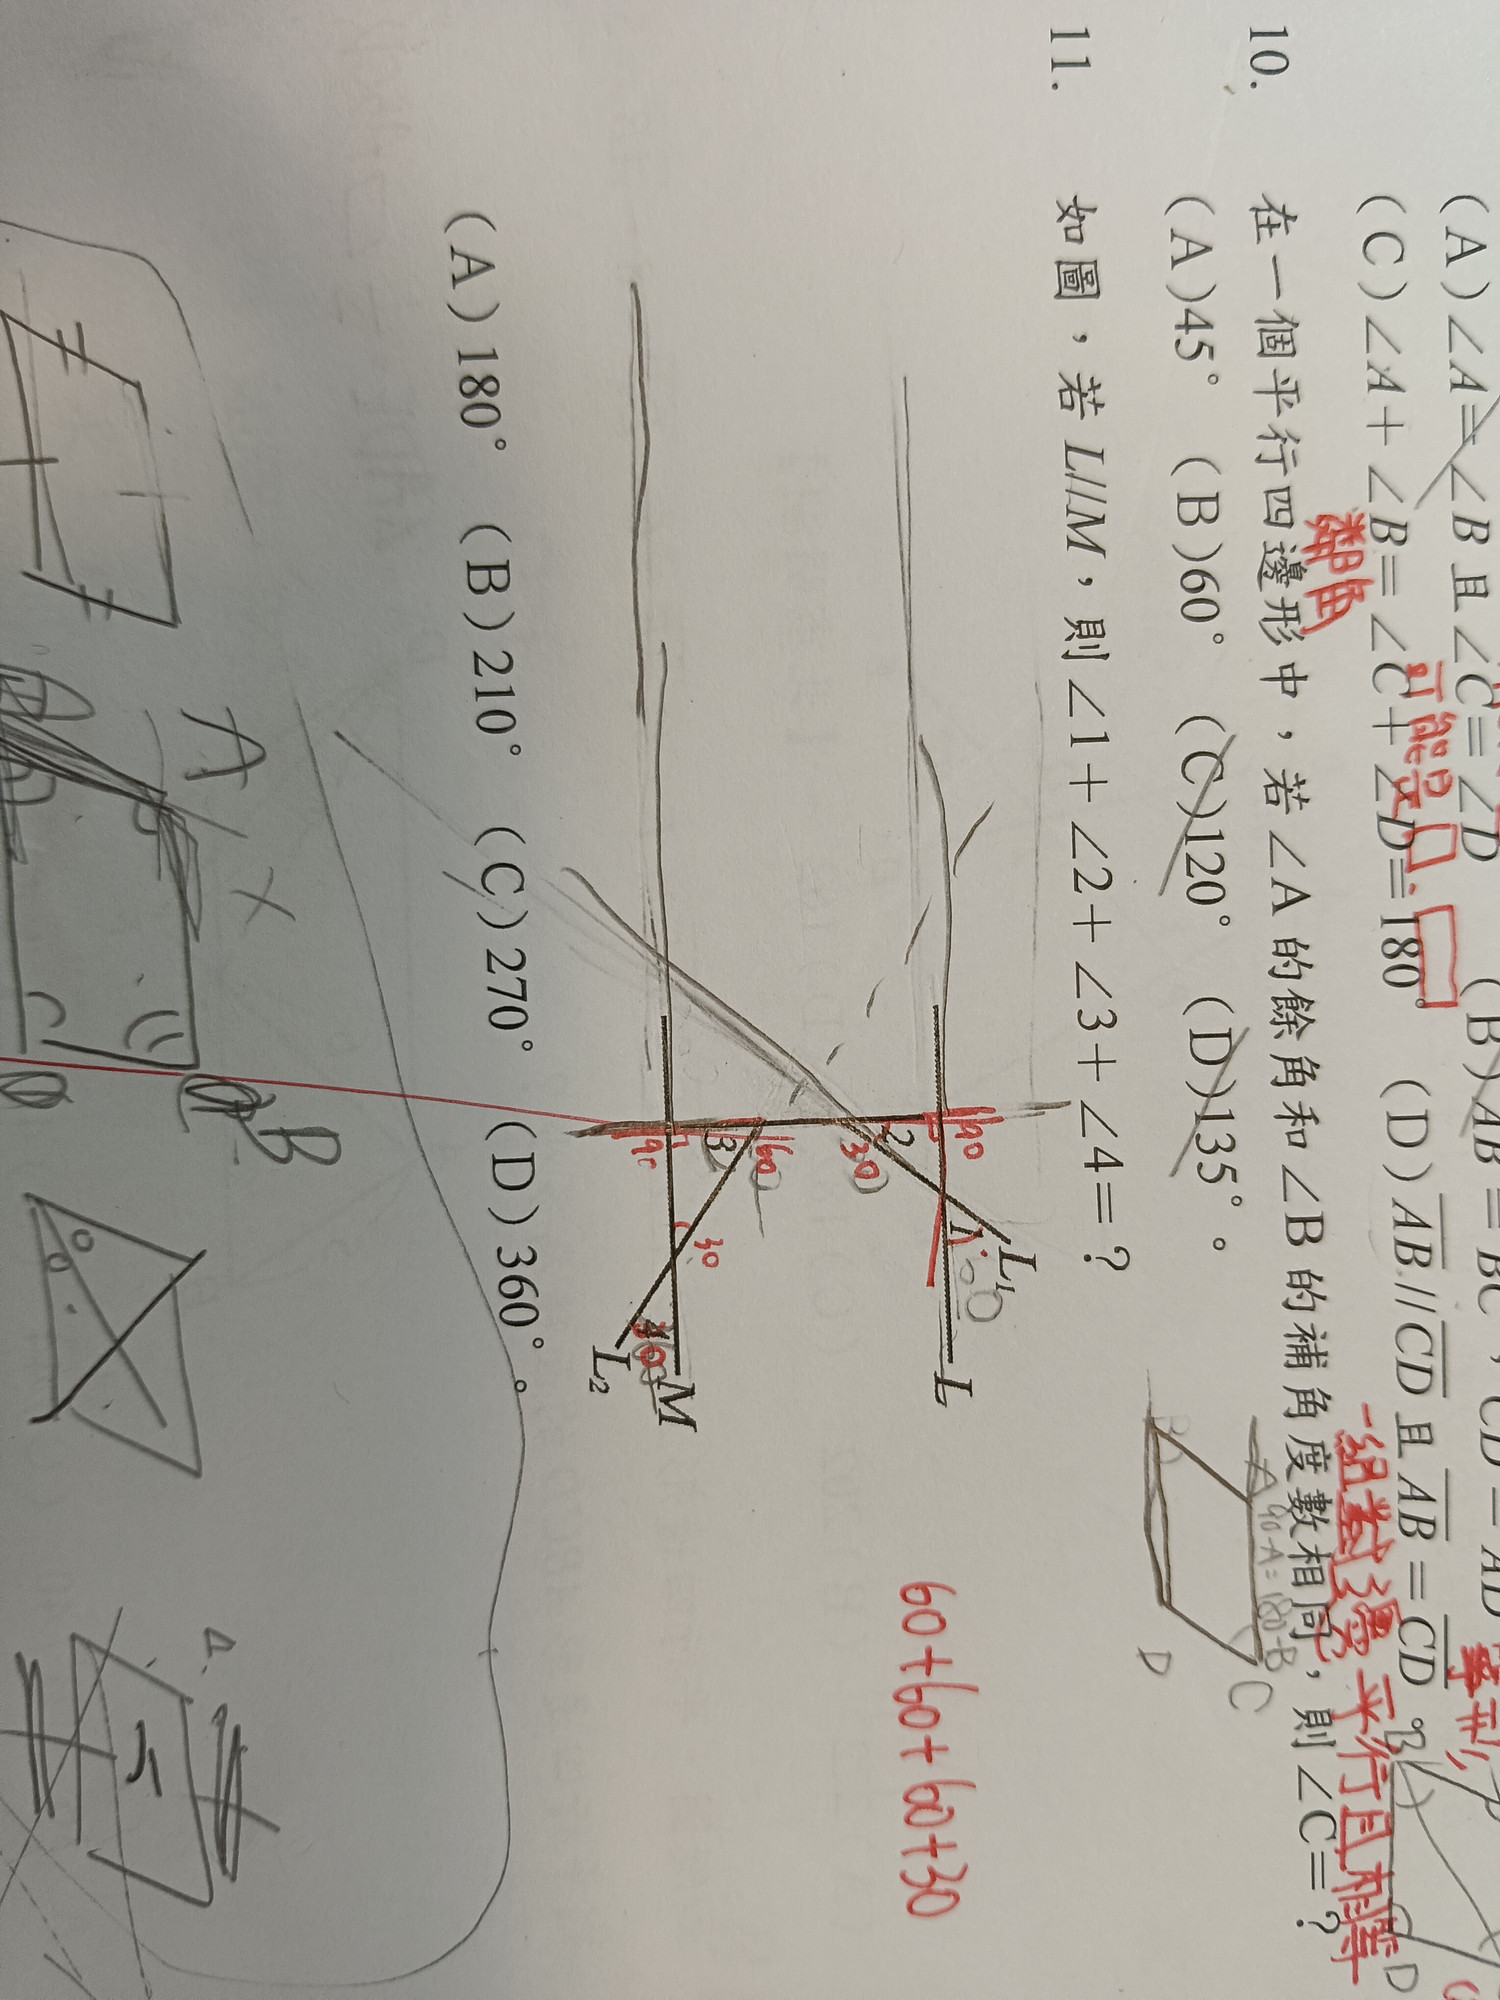 (A)∠A=∠B且∠C=∠D (B)AB=BC,CD=AD
(C)∠A+∠B=∠C+∠D=180° (D)AB//CD且AB=CD。
鄰角
可能是
一組對邊平行且相等
等形
10. 在一個平行四邊形中,若∠A的餘角和∠B的補角度數相同,則∠C=?
(A)45° (B)60° (C)120° (D)135°。
A
B
C
D
90-A=180-B
11. 如圖,若L//M,則∠1+∠2+∠3+∠4=?
L₁
L
1
90
2
30
60
3
90
30
M
L₂
60+60+60+30
(A)180° (B)210° (C)270° (D)360°。
A
B